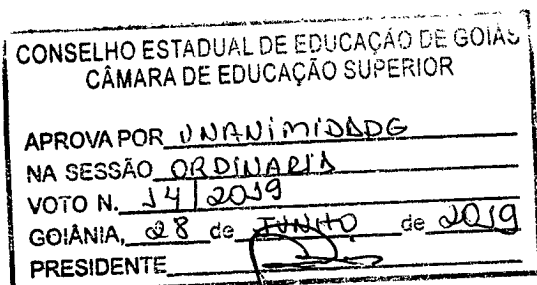 CONSELHO ESTADUAL DE EDUCAÇÃO DE GOIÁS
CÂMARA DE EDUCAÇÃO SUPERIOR
APROVA POR UNANIMIDADE
NA SESSÃO ORDINARIA
VOTO N. 14/2019
GOIÂNIA, 28 de JUNHO de 2019
PRESIDENTE